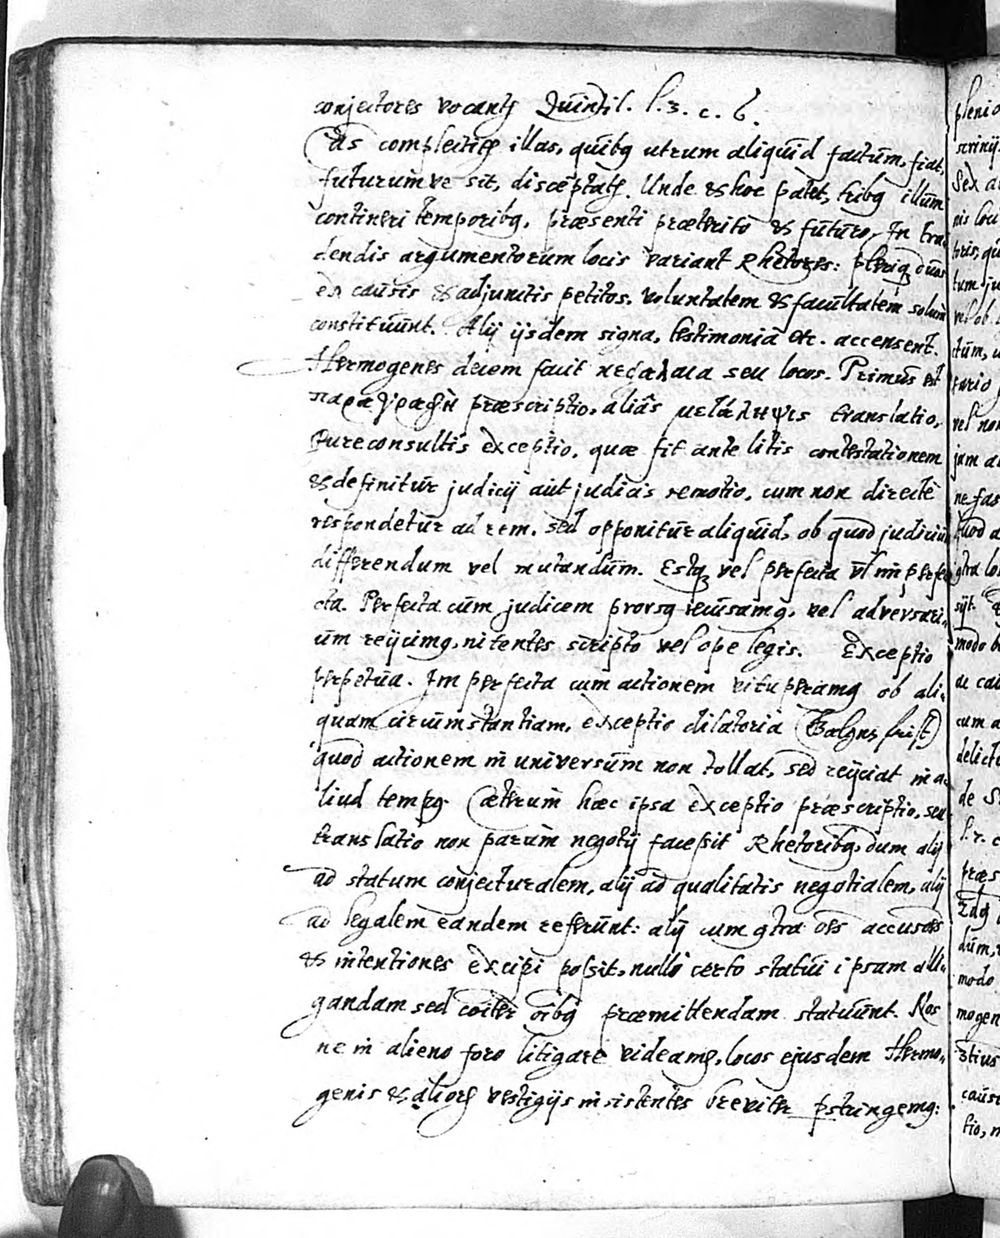 conjectores vocantʒ Quintil. l. 3. c. 6.
eas complectitʒ illas, quibꝗ utrum aliquid factum, fiat,
futurumve sit, disceptatʒ. Unde & hoc patet, tribꝗ illum
contineri temporibꝗ, præsenti præterito & futuro. In tra-
dendis argumentorum locis variant Rhetores: pleriqꝫ duos
ex causis & adjunctis petitos, voluntatem & facultatem solum
constituunt. Alij ijsdem signa, testimonia etc. accensent.
Hermogenes decem facit κεφαλαια seu locos. Primus est
παραγραφὴ præscriptio, aliàs μετάληψις translatio,
Jureconsultis exceptio, quæ fit ante litis contestationem
& definitur judicij aut judicis remotio, cum non directè
respondetur ad rem, sed opponitur aliquid, ob quod judicium
differendum vel mutandum. Estqꝫ vel perfecta vl̄ imperfe
cta. Perfecta cum judicem prorsꝗ recusamꝗ, vel adversari-
um reijcimꝗ, nitentes scripto vel ope legis. Exceptio
perpetua. Imperfecta cum actionem vituperamꝗ ob ali-
quam circumstantiam, exceptio dilatoria
quod actionem in universum non tollat, sed reijciat in a-
liud tempꝗ. Cæterum hæc ipsa exceptio præscriptio, seu
translatio non parum negotij facessit Rhetoribꝗ, dum alij
ad statum conjecturalem, alij ad qualitatis negotialem, alij
ad legalem eandem referunt: alij cum ꝯtra oēs accusōes
& intentiones excipi possit, nullo certo statui ipsam alli-
gandam sed cōiter oībꝗ præmittendam statuunt. Nos
ne in alieno foro litigare videamꝗ, locos ejusdem Hermo-
genis & aliorꝫ vestigijs insistentes breviter pstringemꝗ: